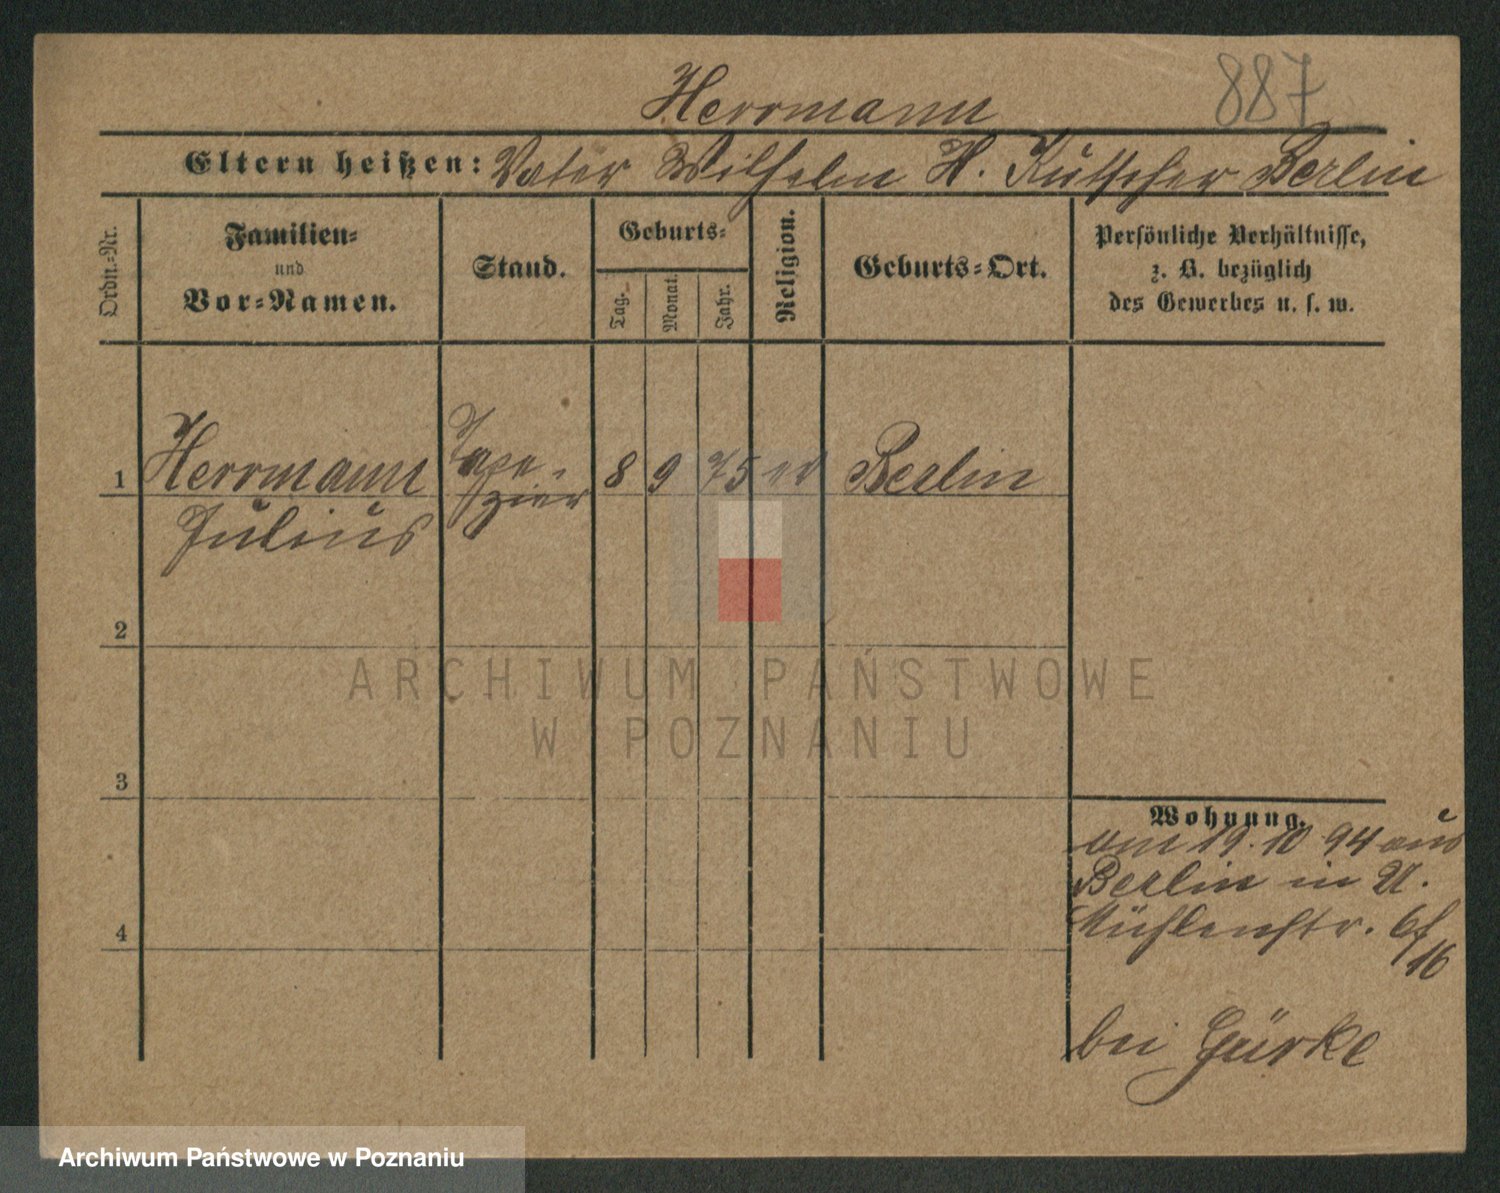 887
Herrmann
Eltern heißen: Vater Wilhelm H. Kutscher Berlin
Ordn.-Nr.
Familien-
und
Vor-Namen.
Stand.
Geburts-
Tag.
Monat.
Jahr.
Religion.
Geburts-Ort.
Persönliche Verhältnisse,
z. B. bezüglich
des Gewerbes u. s. w.
1 Herrmann Tape- 8 9 75 ev Berlin
Julius zier
2
3
4
Wohnung.
am 19.10 94 aus
Berlin in U.
Mühlenstr.
16
bei Gürke
ARCHIWUM PAŃSTWOWE
W POZNANIU
Archiwum Państwowe w Poznaniu